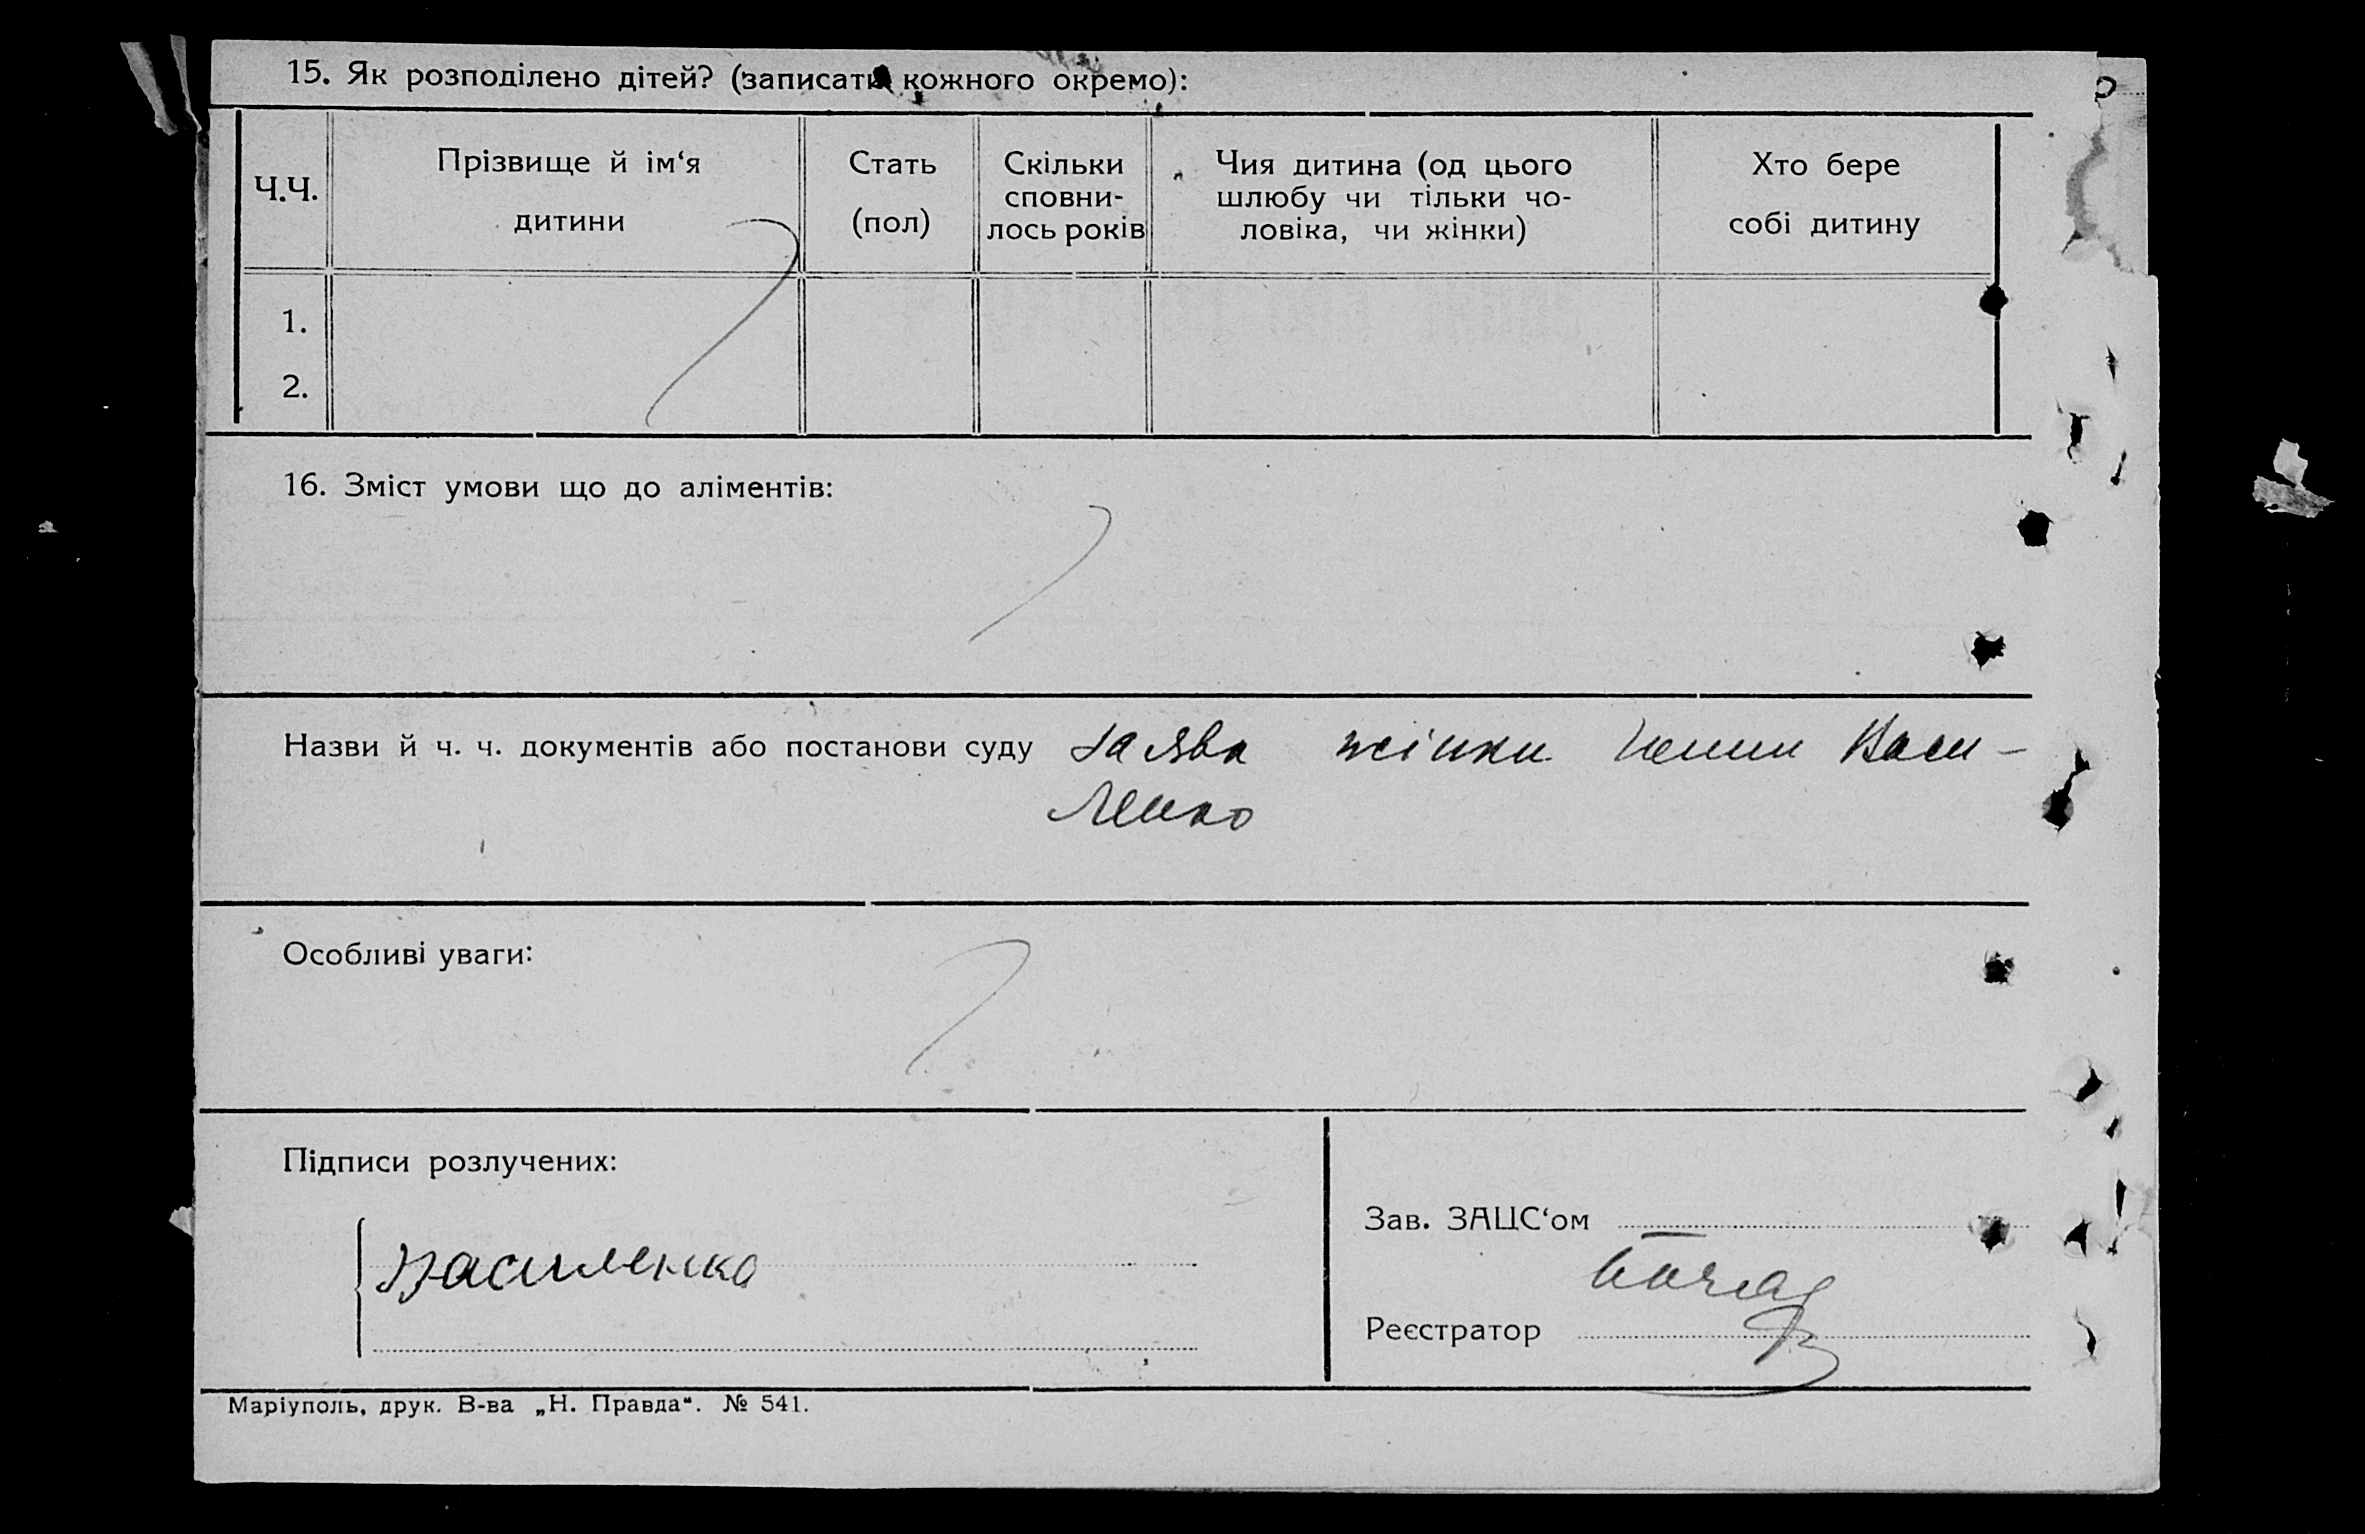 15. Як розподілено дітей? (записати кожного окремо):
Ч.Ч.
Прізвище й ім‘я
дитини
Стать
(пол)
Скільки
сповни-
лось років
Чия дитина (од цього
шлюбу чи тільки чо-
ловіка, чи жінки)
Хто бере
собі дитину
1.
2.
16. Зміст умови що до аліментів:
Назви й ч. ч. документів або постанови суду заява жінки Васи-
ленко
Особливі уваги:
Підписи розлучених:
Василенко
Зав. ЗАЦС‘ом
Реєстратор
Маріуполь, друк. В-ва „Н. Правда“. № 541.